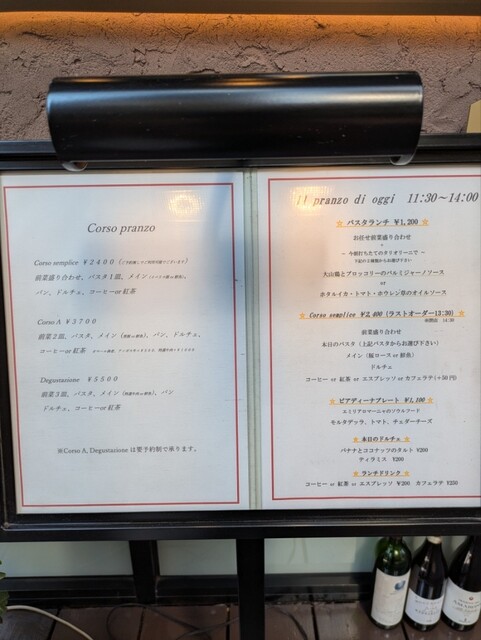 Corso pranzo
Corso semplice ￥2400
前菜盛り合わせ、パスタ1皿、メイン
パン、ドルチェ、コーヒーor紅茶
Corso A ￥3700
前菜2皿、パスタ、メイン、パン、ドルチェ、
コーヒーor紅茶
Degustazione ￥5500
前菜3皿、パスタ、メイン、パン
ドルチェ、コーヒーor紅茶
※Corso A, Degustazione は要予約制で承ります。
Il pranzo di oggi 11:30～14:00
☆ パスタランチ ￥1,200 ☆
お任せ前菜盛り合わせ
+
～ 今朝打ちたてのタリオリーニで ～
下記の2種類からお選び下さい
大山鶏とブロッコリーのパルミジャーノソース
or
ホタルイカ・トマト・ホウレン草のオイルソース
☆ Corso semplice ￥2,400 (ラストオーダー13:30) ☆
14:30
前菜盛り合わせ
本日のパスタ（上記パスタからお選び下さい）
メイン（豚ロース or 鮮魚）
ドルチェ
コーヒー or 紅茶 or エスプレッソ or カフェラテ(＋50円)
☆ ピアディーナプレート ￥1,100 ☆
エミリアロマーニャのソウルフード
モルタデッラ、トマト、チェダーチーズ
☆ 本日のドルチェ ☆
バナナとココナッツのタルト ￥200
ティラミス ￥200
☆ ランチドリンク ☆
コーヒー or 紅茶 or エスプレッソ ￥200 カフェラテ ￥250